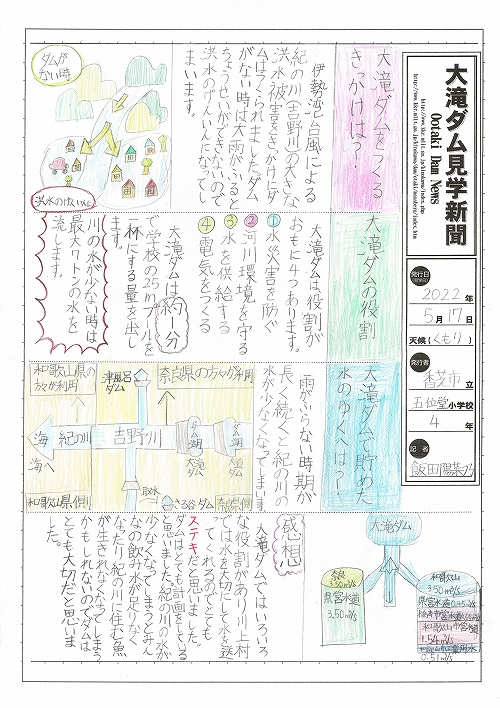 大滝ダム見学新聞
Ootaki Dam News
発行日
2022年
5月17日
天候(くもり)
発行者
香芝市立
五位堂小学校
4年
記者
大滝ダムをつくる
きっかけは?
伊勢湾台風による
紀の川(吉野川)の大きな
洪水被害をきっかけにダ
ムはつくられました。ダム
がない時は大雨がふると
ちょうせいができないので
洪水のげんいんになってし
まいます。
ダムが
ない時
洪水のげんいん
大滝ダムの役割
大滝ダムは役割が
おもに4つあります。
①水災害を防ぐ
②河川環境を守る
③水を供給する
④電気をつくる
大滝ダムは約1分
で学校の25mプールを
一杯にする量を出し
ます。
川の水が少ない時は
最大7トンの水を
流します。
大滝ダムで貯めた
水のゆくへは?
雨がふらない時期が
長く続くと紀の川の
水が少なくなってしまいます。
奈良県の方々が利用
和歌山県の
方々が利用
津風呂
ダム
海
海へ
紀の川
吉野川
ダム湖
大滝
ダム
ダム
湖
大迫
ダム
取水
奈良県側
和歌山県側
大滝ダム
奈良
3.50㎥/s
県営水道
3.50㎥/s
和歌山
3.50㎥/s
県営水道0.45㎥/s
和歌山市営水道
1.54㎥/s
0.51㎥/s
感想
大滝ダムではいろいろ
な役割があり川上村
では水を大切にして水を送
ってくれるのでとても
ステキだと思いました。
ダムはとても計画をしている
と思いました。紀の川の水が
少なくなってしまうとみん
なの飲み水が足りなく
なったり紀の川に住む魚
が生きれなくなってしまう
かもしれないのでダムは
とても大切だと思いま
した。